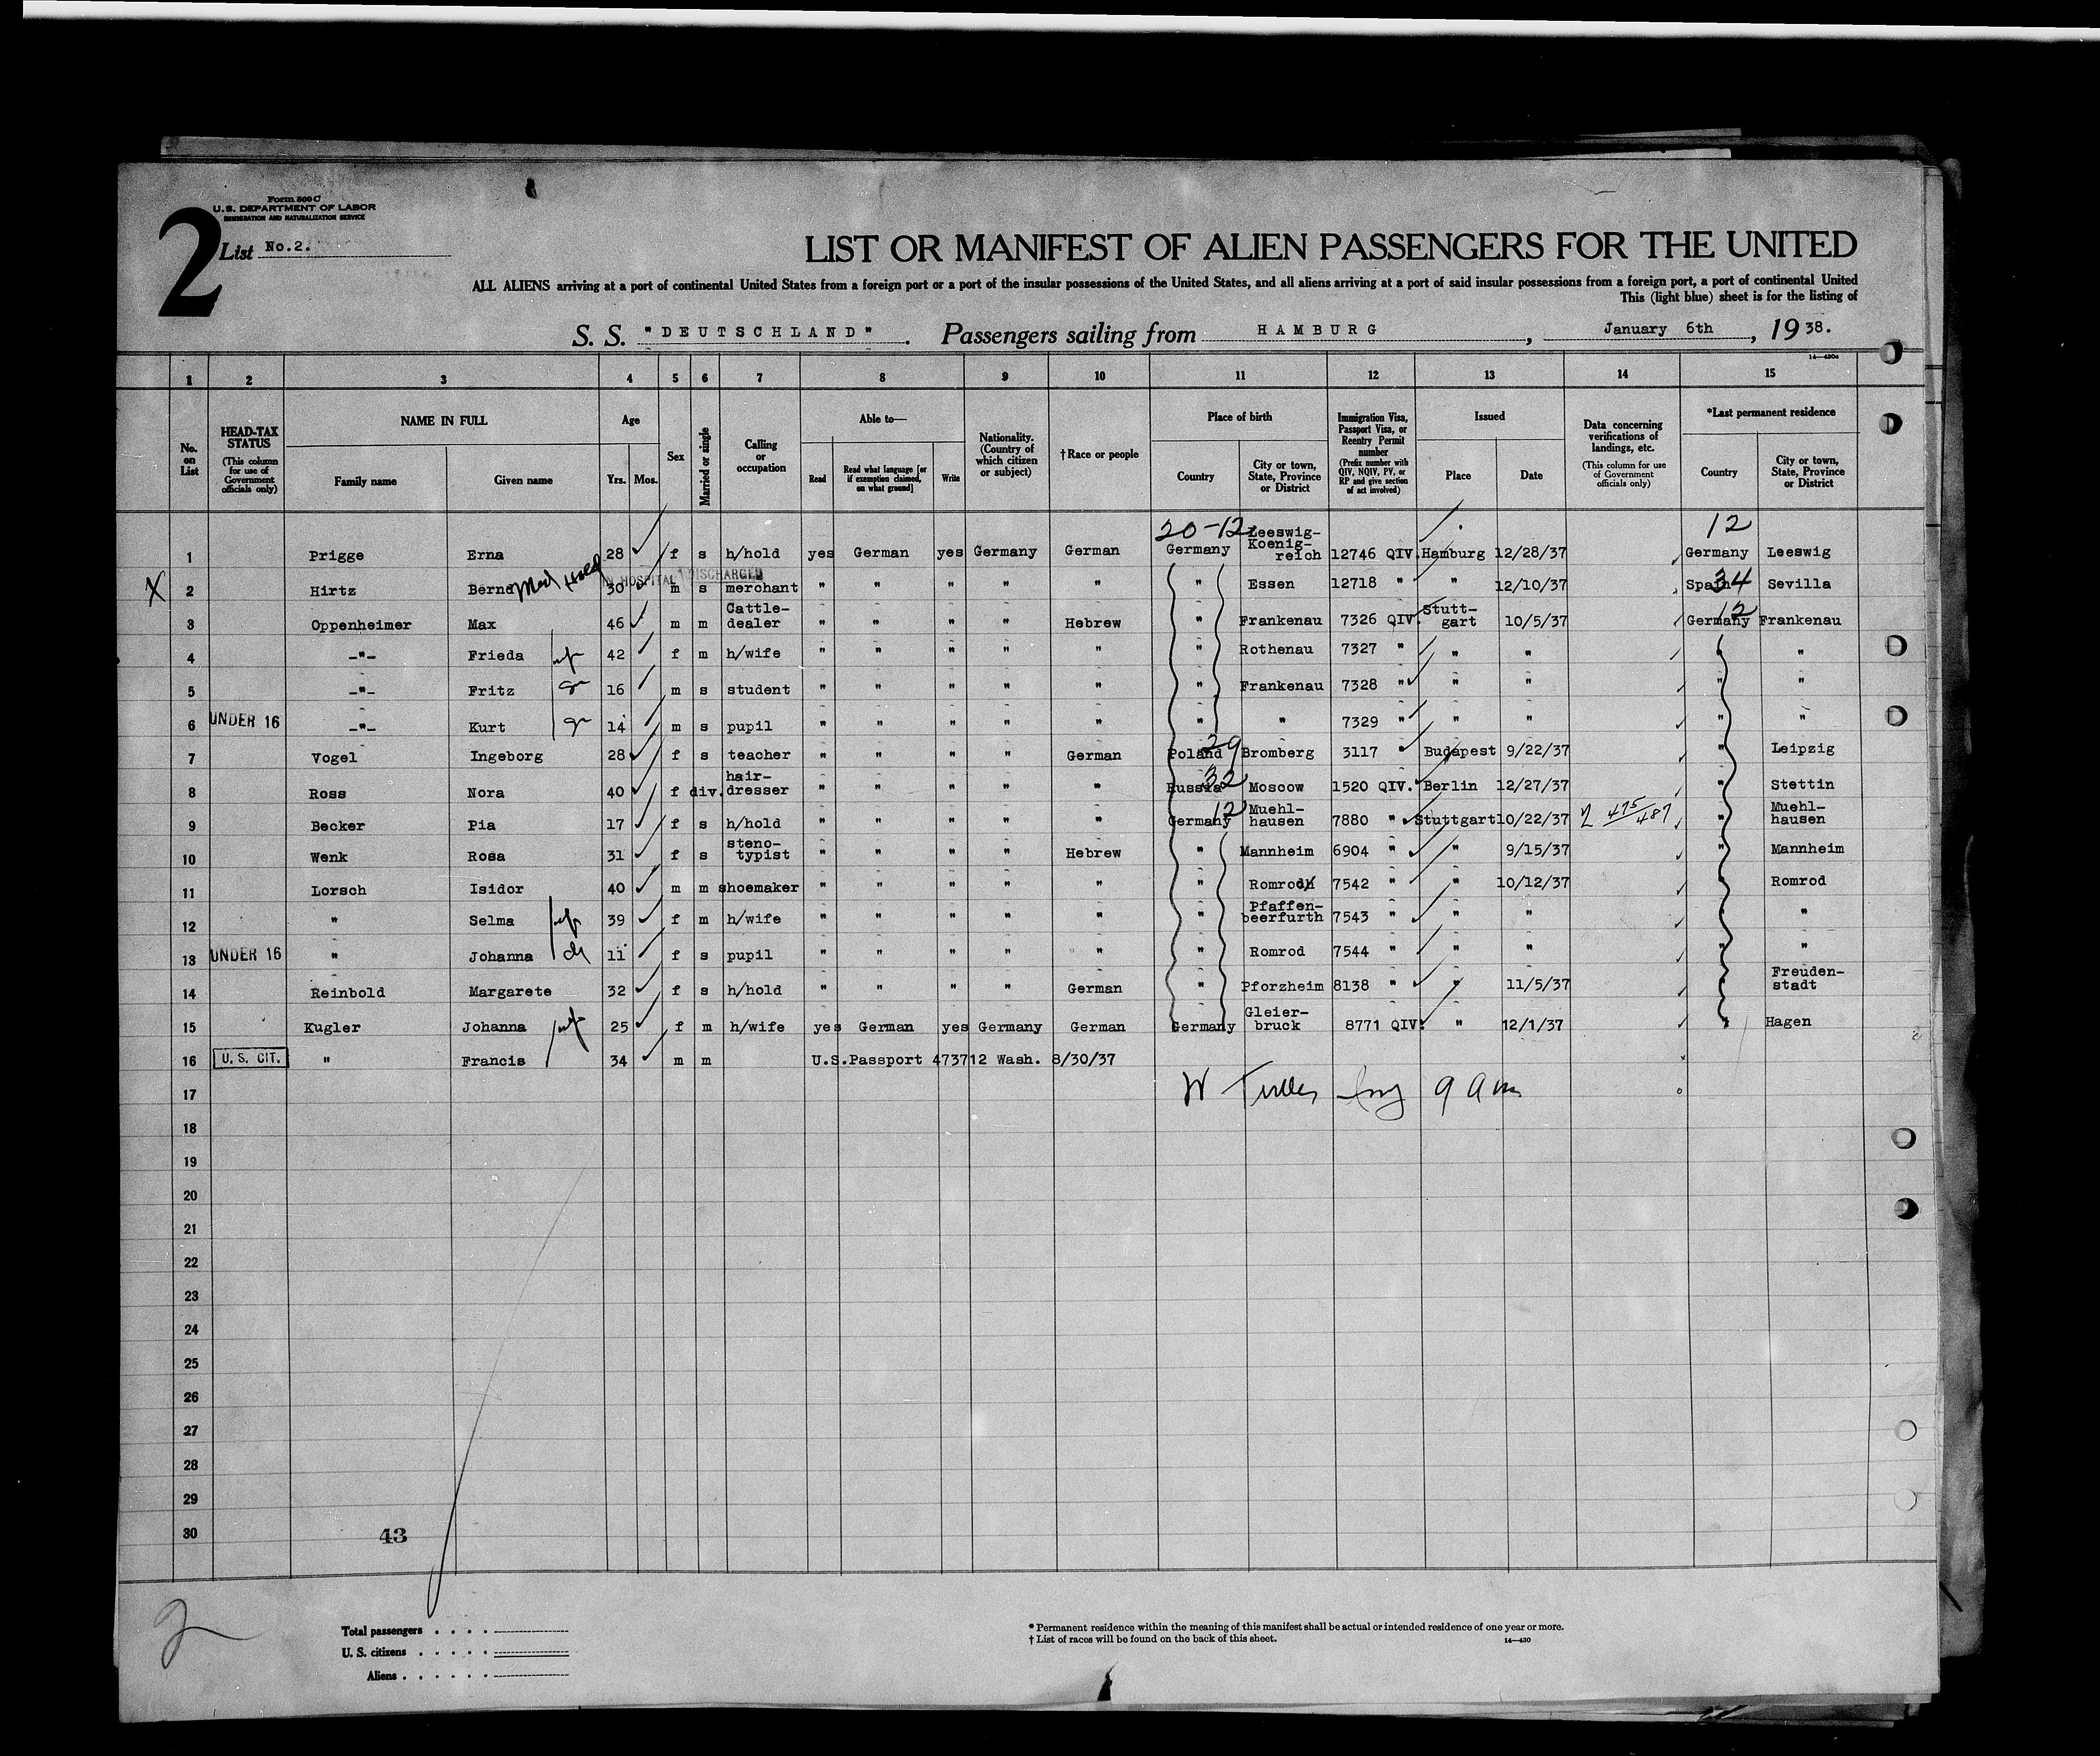 Form 500 C
U. S. DEPARTMENT OF LABOR
IMMIGRATION AND NATURALIZATION SERVICE
2
List No.2.
LIST OR MANIFEST OF ALIEN PASSENGERS FOR THE UNITED
ALL ALIENS arriving at a port of continental United States from a foreign port or a port of the insular possessions of the United States, and all aliens arriving at a port of said insular possessions from a foreign port, a port of continental United
This (light blue) sheet is for the listing of
S. S. "DEUTSCHLAND". Passengers sailing from HAMBURG, January 6th, 19 38.
14—430c
1 2 3 4 5 6 7 8 9 10 11 12 13 14 15
No. on List
HEAD-TAX STATUS (This column for use of Government officials only)
NAME IN FULL Family name Given name
Age Yrs. Mos.
Sex
Married or single
Calling or occupation
Able to— Read Read what language [or if exemption claimed, on what ground] Write
Nationality. (Country of which citizen or subject)
†Race or people
Place of birth Country City or town, State, Province or District
Immigration Visa, Passport Visa, or Reentry Permit number (Prefix number with QIV, NQIV, PV, or RP and give section of act involved)
Issued Place Date
Data concerning verifications of landings, etc. (This column for use of Government officials only)
*Last permanent residence Country City or town, State, Province or District
20-12 12
1 Prigge Erna 28 f s h/hold yes German yes Germany German Germany Leeswig-Koenig-reich 12746 QIV. Hamburg 12/28/37 Germany Leeswig
X 2 Hirtz Bernd Med Hold IN HOSPITAL DISCHARGED 30 m s merchant " " " " " " Essen 12718 " " 12/10/37 Spain 34 Sevilla
3 Oppenheimer Max 46 m m Cattle-dealer " " " " Hebrew " Frankenau 7326 QIV. Stutt-gart 10/5/37 Germany 12 Frankenau
4 -"- Frieda wf 42 f m h/wife " " " " " " Rothenau 7327 " " " " "
5 -"- Fritz 16 m s student " " " " " " Frankenau 7328 " " " " "
6 UNDER 16 -"- Kurt 14 m s pupil " " " " " " " 7329 " " " " "
7 Vogel Ingeborg 28 f s teacher " " " " German Poland 29 Bromberg 3117 Budapest 9/22/37 " Leipzig
8 Ross Nora 40 f div. hair-dresser " " " " " Russia 32 Moscow 1520 QIV. Berlin 12/27/37 " Stettin
9 Becker Pia 17 f s h/hold " " " " " Germany 12 Muehl-hausen 7880 " Stuttgart 10/22/37 475/487 " Muehl-hausen
10 Wenk Rosa 31 f s steno-typist " " " " Hebrew " Mannheim 6904 " " 9/15/37 " Mannheim
11 Lorsch Isidor 40 m m shoemaker " " " " " " Romrod 7542 " " 10/12/37 " Romrod
12 " Selma wf 39 f m h/wife " " " " " " Pfaffen-beerfurth 7543 " " " " "
13 UNDER 16 " Johanna ch 11 f s pupil " " " " " " Romrod 7544 " " " " "
14 Reinbold Margarete 32 f s h/hold " " " " German " Pforzheim 8138 " " 11/5/37 " Freuden-stadt
15 Kugler Johanna wf 25 f m h/wife yes German yes Germany German Germany Gleier-bruck 8771 QIV. " 12/1/37 " Hagen
16 U. S. CIT. " Francis 34 m m U.S.Passport 473712 Wash. 8/30/37
17
18
19
20
21
22
23
24
25
26
27
28
29
30 43
2
Total passengers
U. S. citizens
Aliens
* Permanent residence within the meaning of this manifest shall be actual or intended residence of one year or more.
† List of races will be found on the back of this sheet. 14—430